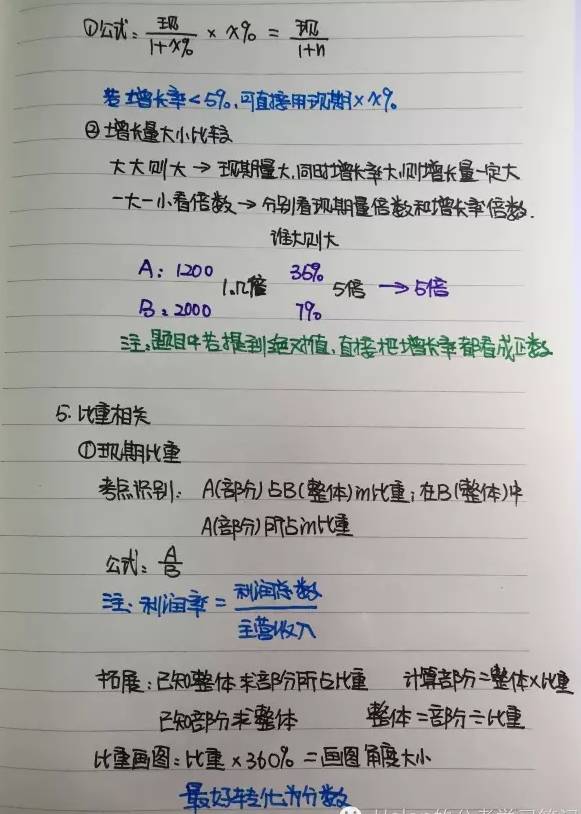 ①公式：现/1+x% × x% = 现/1+n
若增长率<5%,可直接用现期×x%
②增长量大小比较
大大则大→现期量大,同时增长率大,则增长量一定大
一大一小看倍数→分别看现期量倍数和增长率倍数.
谁大则大
A：1200 1.几倍 36% 5倍 →5倍
B：2000 7%
注:题目中若提到绝对值,直接把增长率都看成正数
5.比重相关
①现期比重
考点识别：A(部分)占B(整体)的比重；在B(整体)中
A(部分)所占的比重
公式：A/B
注：利润率=利润总数/主营收入
拓展：已知整体求部分所占比重 计算部分=整体×比重
已知部分求整体 整体=部分÷比重
比重画图：比重×360%=画图角度大小
最好转化为分数